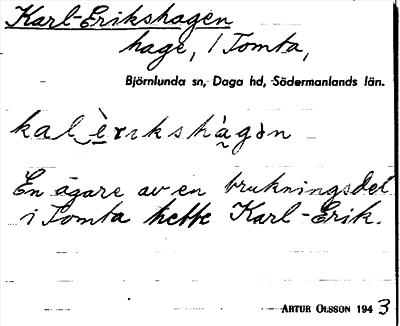 Karl-Erikshagen
hage, i Tomta,
Björnlunda sn, Daga hd, Södermanlands län.
kal‿èrıkshàgən
En ägare av en brukningsdel
i Tomta hette Karl-Erik.
ARTUR OLSSON 1943